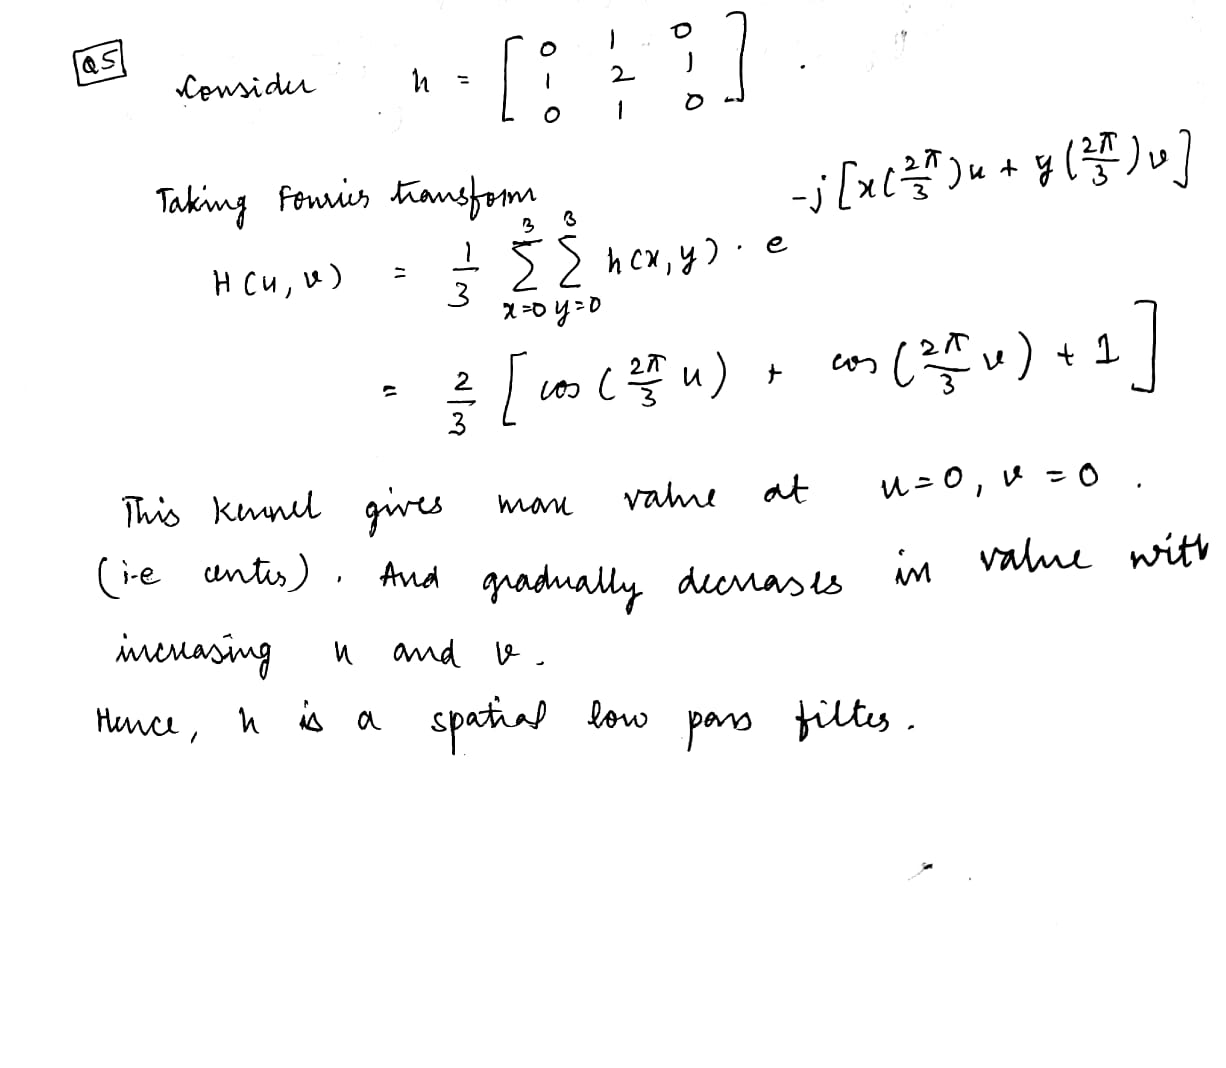 Q5
Consider h = [ 0 1 0
1 2 1
0 1 0 ] .
Taking Fourier transform
H(u, v) = 1/3 3Σx=0 3Σy=0 h(x,y) . e^-j[x(2π/3)u + y(2π/3)v]
= 2/3 [ cos(2π/3 u) + cos(2π/3 v) + 1 ]
This kernel gives max value at u=0, v=0 .
(i.e center) . And gradually decreases in value with
increasing u and v .
Hence, h is a spatial low pass filter .